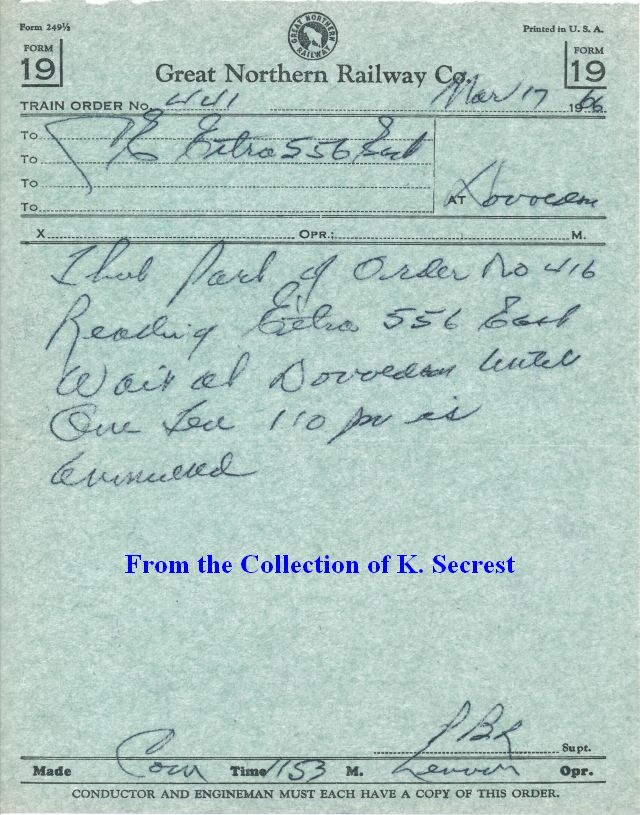 Form 249½
Printed in U. S. A.
GREAT NORTHERN RAILWAY
FORM 19
FORM 19
Great Northern Railway Co.
TRAIN ORDER No. 441 Mar 17 1966
To C&E Extra 556 East
To
To
To
AT
X OPR.: M.
That Part of Order No 416
Reading Extra 556 East
Wait at until
One Ten 110 pm is
annulled
From the Collection of K. Secrest
Supt.
Made Com Time 1153 M. Opr.
CONDUCTOR AND ENGINEMAN MUST EACH HAVE A COPY OF THIS ORDER.